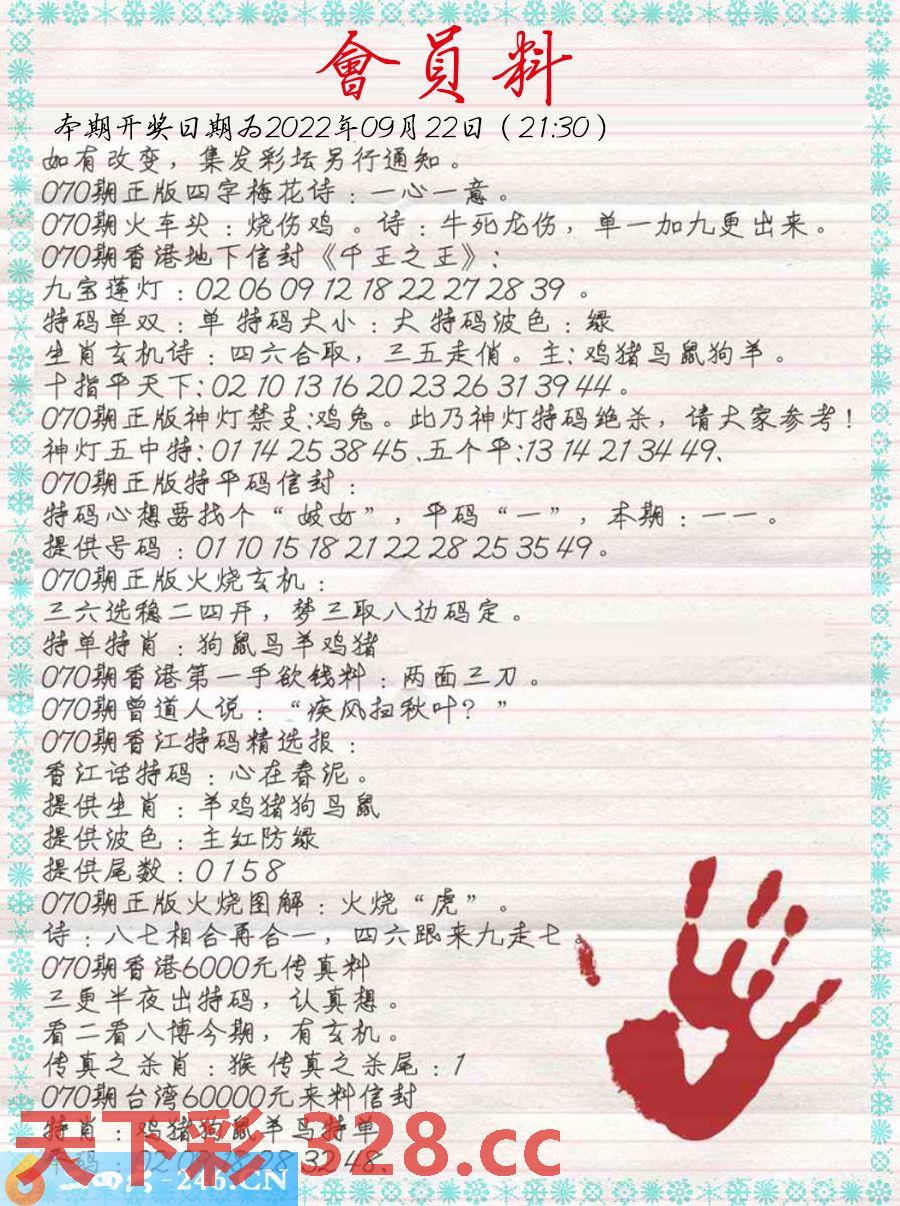 會員料
本期开奖日期为2022年09月22日（21:30）
如有改变，集发彩坛另行通知。
070期正版四字梅花诗：一心一意。
070期火车头：烧伤鸡 。诗：牛死龙伤，单一加九更出来。
070期香港地下信封《千王之王》：
九宝莲灯：02 06 09 12 18 22 27 28 39 。
特码单双：单 特码大小：大 特码波色：绿
生肖玄机诗：四六合取，三五走俏。主：鸡猪马鼠狗羊。
十指平天下：02 10 13 16 20 23 26 31 39 44。
070期正版神灯禁支：鸡兔。此乃神灯特码绝杀，请大家参考！
神灯五中特：01 14 25 38 45、五个平：13 14 21 34 49、
070期正版特平码信封：
特码心想要找个“ 妓女”，平码“一”，本期：一一。
提供号码：01 10 15 18 21 22 28 25 35 49。
070期正版火烧玄机：
三六选稳二四开，梦三取八边码定。
特单特肖：狗鼠马羊鸡猪
070期香港第一手欲钱料：两面三刀。
070期曾道人说：“疾风扫秋叶？”
070期香江特码精选报：
香江话特码：心在春泥。
提供生肖：羊鸡猪狗马鼠
提供波色：主红防绿
提供尾数：0 1 5 8
070期正版火烧图解：火烧“虎”。
诗：八七相合再合一，四六跟来九走七。
070期香港6000元传真料
三更半夜出特码，认真想。
看二看八博今期，有玄机。
传真之杀肖：猴 传真之杀尾：1
070期台湾60000元来料信封
特肖：鸡猪狗鼠羊马特单
天下彩 328.cc
28 32 48、
-246.CN